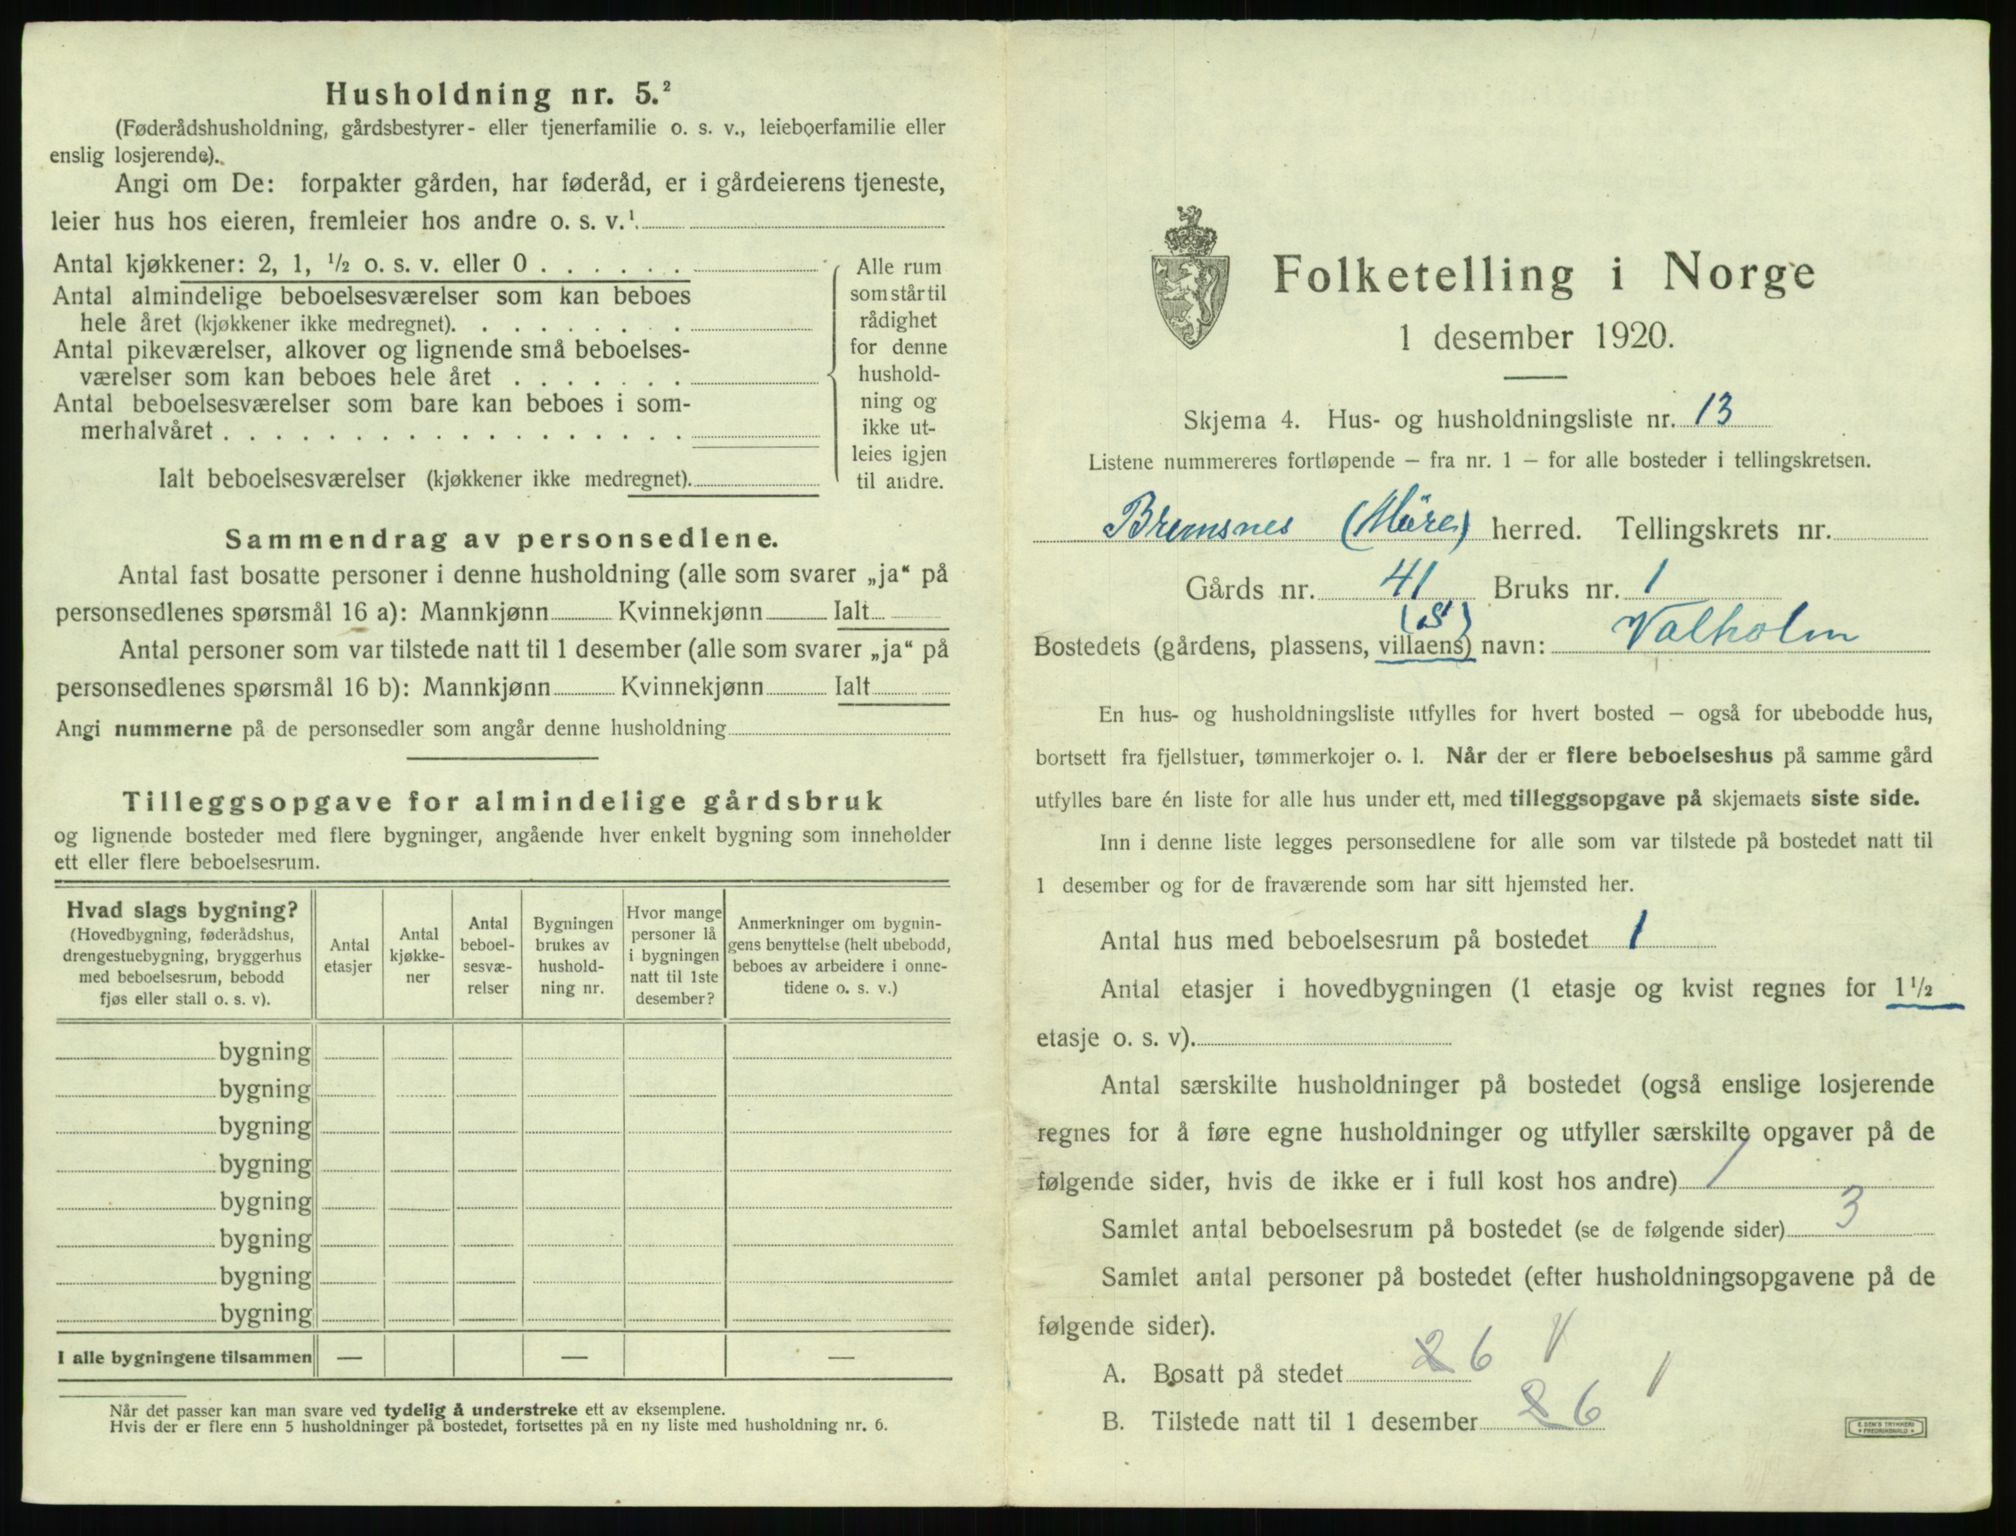 Husholdning nr. 5.²
(Føderådshusholdning, gårdsbestyrer- eller tjenerfamilie o. s. v., leieboerfamilie eller
enslig losjerende).
Angi om De: forpakter gården, har føderåd, er i gårdeierens tjeneste,
leier hus hos eieren, fremleier hos andre o. s. v.¹
Antal kjøkkener: 2, 1, ½ o. s. v. eller 0 . . . . . .
Antal almindelige beboelsesværelser som kan beboes
hele året (kjøkkener ikke medregnet). . . . . . . . .
Antal pikeværelser, alkover og lignende små beboelses-
værelser som kan beboes hele året . . . . . . .
Antal beboelsesværelser som bare kan beboes i som-
merhalvåret . . . . . . . . . . . . . . . . . .
Ialt beboelsesværelser (kjøkkener ikke medregnet).
Alle rum
som står til
rådighet
for denne
hushold-
ning og
ikke ut-
leies igjen
til andre.
Sammendrag av personsedlene.
Antal fast bosatte personer i denne husholdning (alle som svarer „ja“ på
personsedlenes spørsmål 16 a): Mannkjønn Kvinnekjønn Ialt
Antal personer som var tilstede natt til 1 desember (alle som svarer „ja“ på
personsedlenes spørsmål 16 b): Mannkjønn Kvinnekjønn Ialt
Angi nummerne på de personsedler som angår denne husholdning
Tilleggsopgave for almindelige gårdsbruk
og lignende bosteder med flere bygninger, angående hver enkelt bygning som inneholder
ett eller flere beboelsesrum.
Hvad slags bygning?
(Hovedbygning, føderådshus,
drengestuebygning, bryggerhus
med beboelsesrum, bebodd
fjøs eller stall o. s. v).
Antal
etasjer
Antal
kjøkke-
ner
Antal
beboel-
sesvæ-
relser
Bygningen
brukes av
hushold-
ning nr.
Hvor mange
personer lå
i bygningen
natt til 1ste
desember?
Anmerkninger om bygnin-
gens benyttelse (helt ubebodd,
beboes av arbeidere i onne-
tidene o. s. v.)
bygning
bygning
bygning
bygning
bygning
bygning
bygning
bygning
I alle bygningene tilsammen — — —
Når det passer kan man svare ved tydelig å understreke ett av eksemplene.
Hvis der er flere enn 5 husholdninger på bostedet, fortsettes på en ny liste med husholdning nr. 6.
Folketelling i Norge
1 desember 1920.
Skjema 4. Hus- og husholdningsliste nr. 13
Listene nummereres fortløpende – fra nr. 1 – for alle bosteder i tellingskretsen.
Bremsnes (Möre) herred. Tellingskrets nr.
Gårds nr. 41 Bruks nr. 1
(S)
Bostedets (gårdens, plassens, villaens) navn: Valholm
En hus- og husholdningsliste utfylles for hvert bosted – også for ubebodde hus,
bortsett fra fjellstuer, tømmerkojer o. l. Når der er flere beboelseshus på samme gård
utfylles bare én liste for alle hus under ett, med tilleggsopgave på skjemaets siste side.
Inn i denne liste legges personsedlene for alle som var tilstede på bostedet natt til
1 desember og for de fraværende som har sitt hjemsted her.
Antal hus med beboelsesrum på bostedet 1
Antal etasjer i hovedbygningen (1 etasje og kvist regnes for 1½
etasje o. s. v).
Antal særskilte husholdninger på bostedet (også enslige losjerende
regnes for å føre egne husholdninger og utfyller særskilte opgaver på de
følgende sider, hvis de ikke er i full kost hos andre) 1
Samlet antal beboelsesrum på bostedet (se de følgende sider) 3
Samlet antal personer på bostedet (efter husholdningsopgavene på de
følgende sider).
A. Bosatt på stedet 6
B. Tilstede natt til 1 desember 6